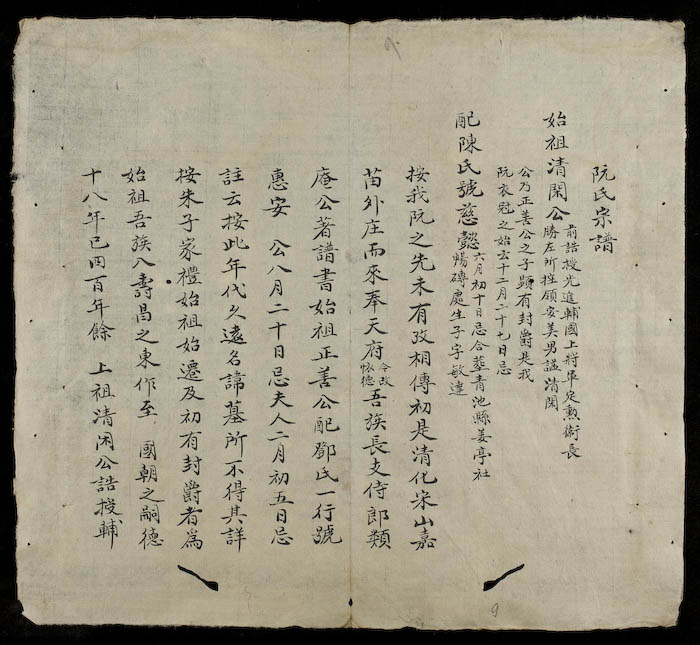 阮氏宗譜
始祖清閑公前誥授先進輔國上將軍定勲衛長
勝左所控領安美男謚清閑
公乃正善公之子顯有封爵是我
阮衣冠之始云十二月二十七日忌
配陳氏號慈懿六月初十日忌合墓青池縣姜亭社
暢磚處生子字敏達
按我阮之先未有攷相傳初是清化宋山嘉
苗外庄而來奉天府今改懐德吾族長支侍郎類
庵公著譜書始祖正善公配鄧氏一行號
惠安 公八月二十日忌夫人二月初五日忌
註云按此年代久遠名諱墓所不得其詳
按朱子家禮始祖始遷及初有封爵者爲
始祖吾族入壽昌之東作至 國朝之嗣德
十八年已四百年餘 上祖清闲公誥授輔